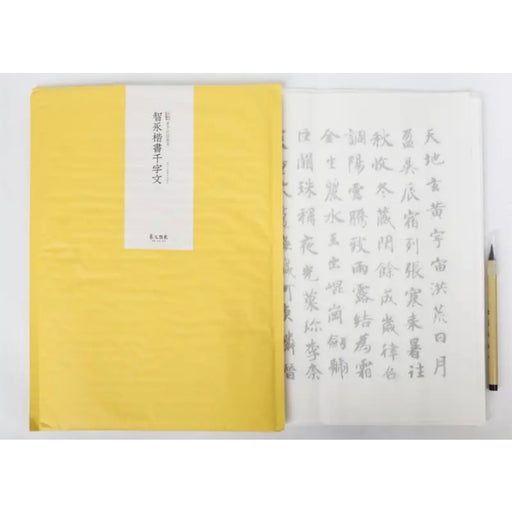 智永楷書千字文
天地玄黃宇宙洪荒日月
盈昃辰宿列張寒來暑往
秋收冬藏閏餘成歲律呂
調陽雲騰致雨露結為霜
金生麗水玉出崐崗劍號
巨闕珠稱夜光菓珍李柰